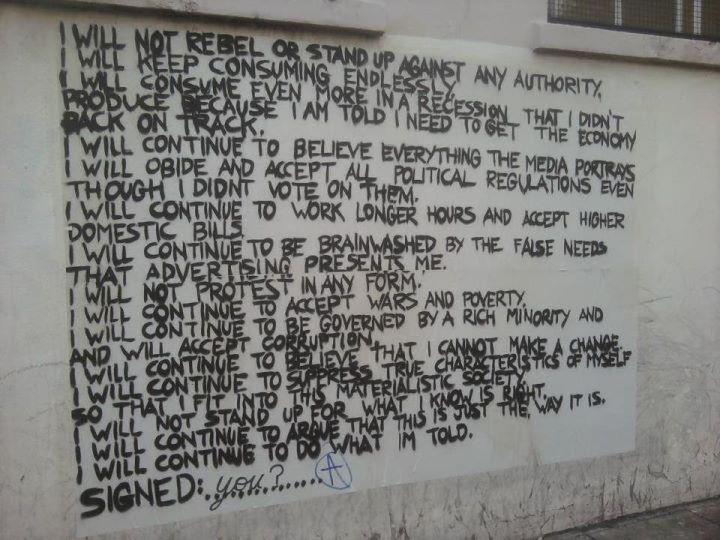 I WILL NOT REBEL OR STAND UP AGAINST ANY AUTHORITY.
I WILL KEEP CONSUMING ENDLESSLY.
I WILL CONSUME EVEN MORE IN A RECESSION THAT I DIDN'T
PRODUCE BECAUSE I AM TOLD I NEED TO GET THE ECONOMY
BACK ON TRACK.
I WILL CONTINUE TO BELIEVE EVERYTHING THE MEDIA PORTRAYS
I WILL OBIDE AND ACCEPT ALL POLITICAL REGULATIONS EVEN
THOUGH I DIDNT VOTE ON THEM.
I WILL CONTINUE TO WORK LONGER HOURS AND ACCEPT HIGHER
DOMESTIC BILLS
I WILL CONTINUE TO BE BRAINWASHED BY THE FALSE NEEDS
THAT ADVERTISING PRESENTS ME.
I WILL NOT PROTEST IN ANY FORM.
I WILL CONTINUE TO ACCEPT WARS AND POVERTY.
I WILL CONTINUE TO BE GOVERNED BY A RICH MINORITY AND
AND WILL ACCEPT CORRUPTION.
I WILL CONTINUE TO BELIEVE THAT I CANNOT MAKE A CHANGE
I WILL CONTINUE TO SUPPRESS TRUE CHARACTERISTICS OF MYSELF
SO THAT I FIT INTO THIS MATERIALISTIC SOCIETY.
I WILL NOT STAND UP FOR WHAT I KNOW IS RIGHT.
I WILL CONTINUE TO ARGUE THAT THIS IS JUST THE WAY IT IS.
I WILL CONTINUE TO DO WHAT IM TOLD.
SIGNED: you?........ A